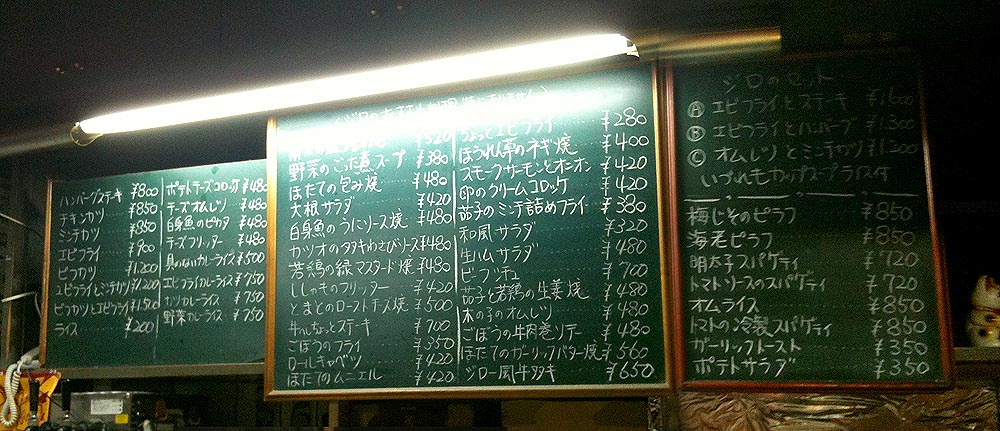 ハンバーグステーキ ¥800
チキンカツ ¥850
ミンチカツ ¥850
エビフライ ¥900
ビーフカツ ¥1,200
エビフライとミンチカツ ¥1,200
ビーフカツとエビフライ ¥1,500
ライス ¥200
ポテトチーズコロッケ ¥480
チーズオムレツ ¥480
白身魚のピカタ ¥480
チーズフリッター ¥480
具のないカレーライス ¥500
エビフライカレーライス ¥750
カツカレーライス ¥750
野菜カレーライス ¥750
¥520
野菜のごった煮スープ ¥380
ほたての包み焼 ¥480
大根サラダ ¥420
白身魚のうにソース焼 ¥480
カツオのタタキわさびソース ¥480
若鶏の緑マスタード焼 ¥480
ししゃものフリッター ¥420
とまとのローストチーズ焼 ¥500
牛のちょっとステーキ ¥700
ごぼうのフライ ¥350
ロールキャベツ ¥420
ほたてのムニエル ¥420
ちょっとエビフライ ¥280
ほうれん草のネギ焼 ¥400
スモークサーモンとオニオン ¥420
卵のクリームコロッケ ¥420
茄子のミンチ詰めフライ ¥380
和風サラダ ¥320
生ハムサラダ ¥480
ビーフシチュー ¥700
茄子と若鶏の生姜焼 ¥480
木の子のオムレツ ¥480
ごぼうの牛肉巻ソテー ¥480
ほたてのガーリックバター焼 ¥560
ジロー風牛タタキ ¥650
ジロのセット
Ⓐ エビフライとステーキ ¥1,600
Ⓑ エビフライとハンバーグ ¥1,300
Ⓒ オムレツとミンチカツ ¥1,200
いづれもカップスープライス付
梅じそのピラフ ¥850
海老ピラフ ¥850
明太子スパゲティ ¥720
トマトソースのスパゲティ ¥720
オムライス ¥850
トマトの冷製スパゲティ ¥850
ガーリックトースト ¥350
ポテトサラダ ¥350